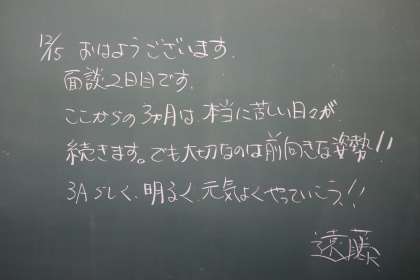 12/15 おはようございます.
面談2日目です.
ここからの3ヵ月は、本当に苦しい日々が
続きます。でも大切なのは前向きな姿勢!!
3Aらしく、明るく、元気よくやっていこう!!
遠藤